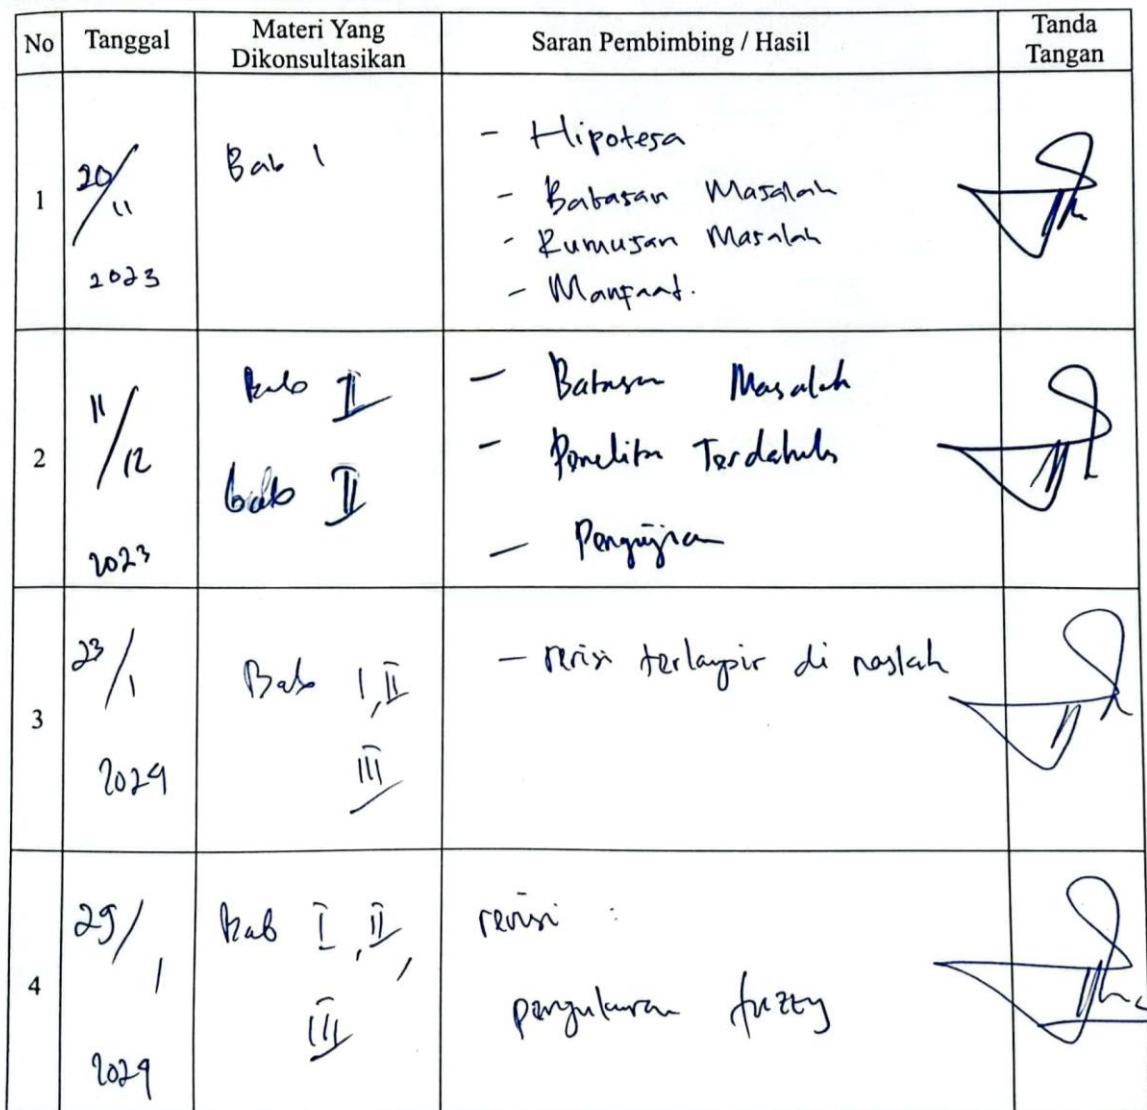 No Tanggal Materi Yang Dikonsultasikan Saran Pembimbing / Hasil Tanda Tangan
1 20/11 2023 Bab 1
- Hipotesa
- Batasan Masalah
- Rumusan Masalah
- Manfaat.
2 11/12 2023 Bab II
bab II
- Batasan Masalah
- Penelitn Terdahulu
- Pengujian
3 23/1 2024 Bab I, II
III
- revisi terlampir di naskah
4 29/1 2024 Bab I, II,
III
revisi :
pengukuran fuzzy